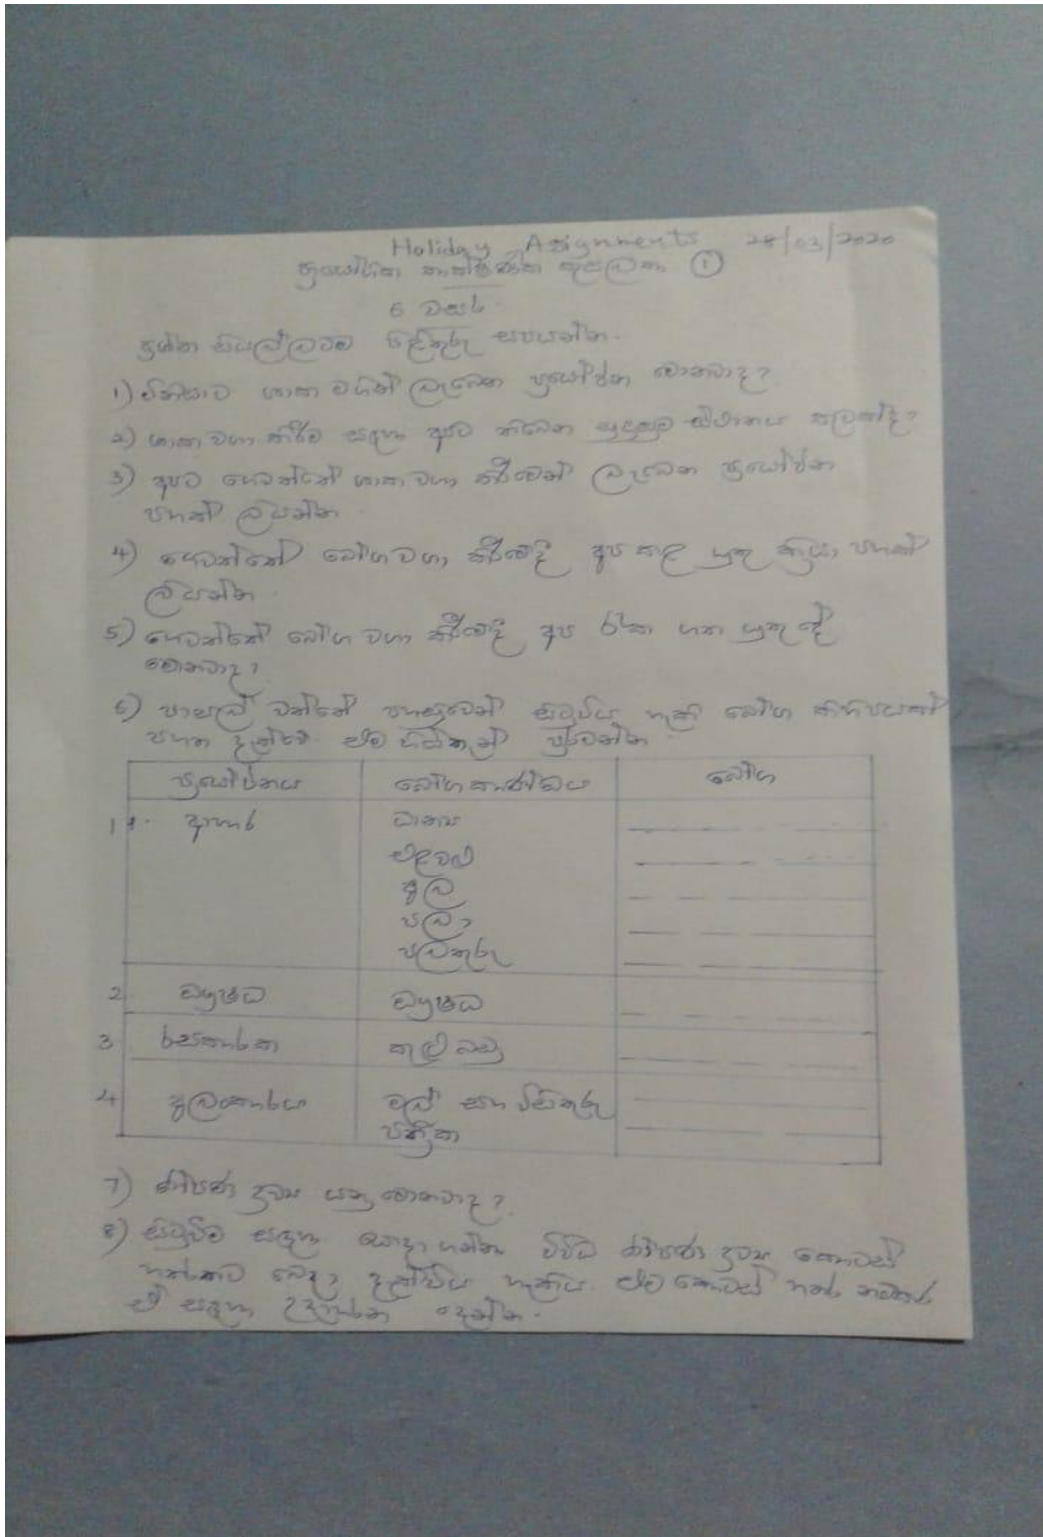 Holiday Assignments 28/03/2020
ප්‍රායෝගික තාක්ෂණික කුසලතා ①
6 වසර
ප්‍රශ්න සියල්ලටම පිළිතුරු සපයන්න.
1) මිනිසාට ශාක වගින් ලැබෙන ප්‍රයෝජන මොනවාද?
2) ශාක වගා කිරීම සඳහා අපට තිබෙන සුදුසුම ස්ථානය කුමක්ද?
3) අපට ගෙවත්තේ ශාක වගා කිරීමෙන් ලැබෙන ප්‍රයෝජන
පහක් ලියන්න.
4) ගෙවත්තේ බෝග වගා කිරීමේදී අප කළ යුතු ක්‍රියා පහක්
ලියන්න.
5) ගෙවත්තේ බෝග වගා කිරීමේදී අප රැක ගත යුතු දේ
මොනවාද?
6) පාසල් වත්තේ පහසුවෙන් සිටුවිය හැකි බෝග කිහිපයක්
පහත දැක්වේ. එම හිස්තැන් පුරවන්න.
ප්‍රයෝජනය බෝග කාණ්ඩය බෝග
1. ආහාර ධාන්‍ය
එළවළු
අල
පලා
පලතුරු
2 ඖෂධ ඖෂධ
3 රසකාරක කුළු බඩු
4 අලංකාරය මල් සහ විසිතුරු
පත්‍රිකා
7) රෝපණ ද්‍රව්‍ය යනු මොනවාද?
8) සිටුවීම සඳහා යොදා ගන්නා විවිධ රෝපණ ද්‍රව්‍ය කොටස්
හතරකට බෙදා දැක්විය හැකිය. එම කොටස් හතර නම්කර
ඒ සඳහා උදාහරන දෙන්න.